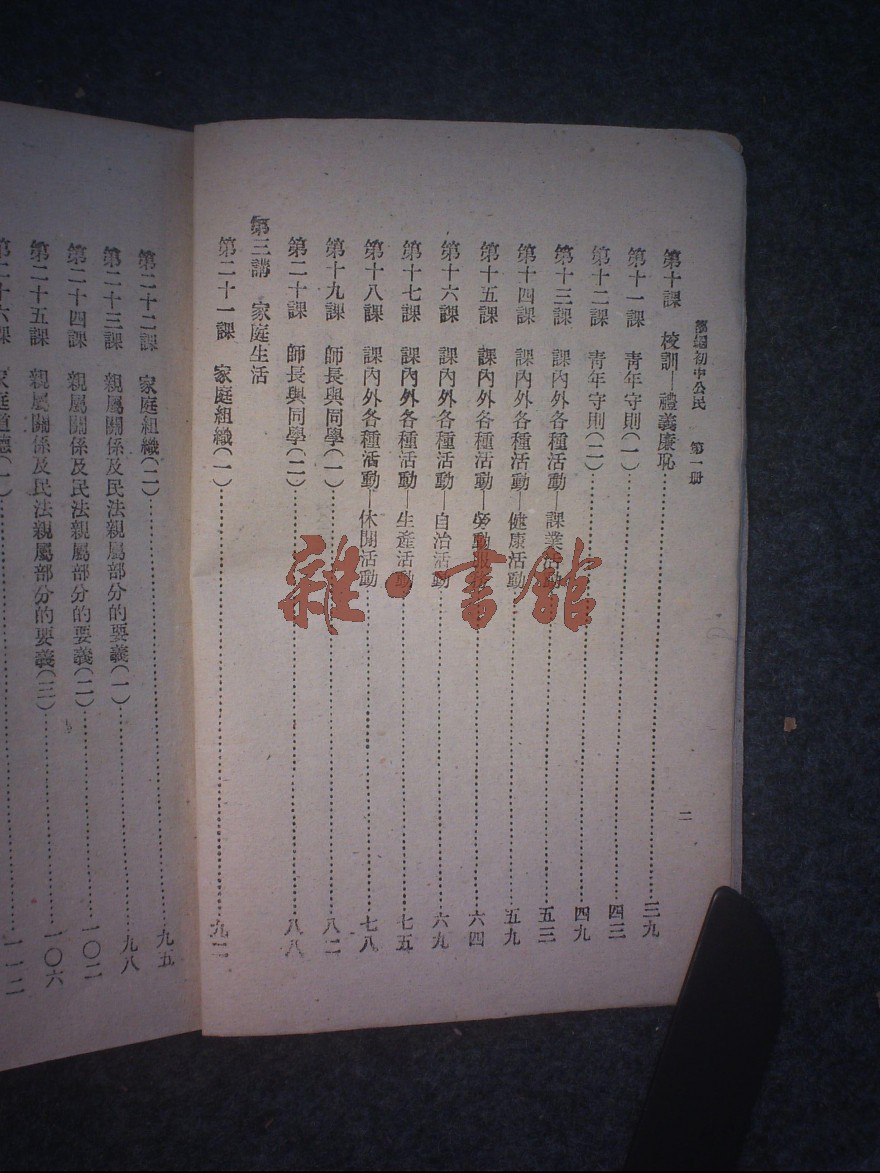 部編初中公民 第一册 二
第十課 校訓—禮義廉恥……三九
第十一課 青年守則(一)……四三
第十二課 青年守則(二)……四九
第十三課 課內外各種活動—課業活動……五三
第十四課 課內外各種活動—健康活動……五九
第十五課 課內外各種活動—勞動服務……六四
第十六課 課內外各種活動—自治活動……六九
第十七課 課內外各種活動—生產活動……七五
第十八課 課內外各種活動—休閒活動……七八
第十九課 師長與同學(一)……八二
第二十課 師長與同學(二)……八八
第三講 家庭生活
第二十一課 家庭組織(一)……九二
第二十二課 家庭組織(二)……九五
第二十三課 親屬關係及民法親屬部分的要義(一)……九八
第二十四課 親屬關係及民法親屬部分的要義(二)……一〇二
第二十五課 親屬關係及民法親屬部分的要義(三)……一〇六
第二十六課 家庭道德(一)……一一二
雜·書館